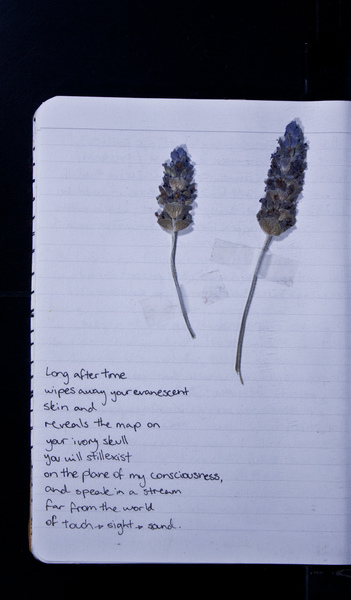 Long after time
wipes away your evanescent
skin and
reveals the map on
your ivory skull
you will still exist
on the plane of my consciousness,
and speak in a stream
far from the world
of touch → sight → sound.